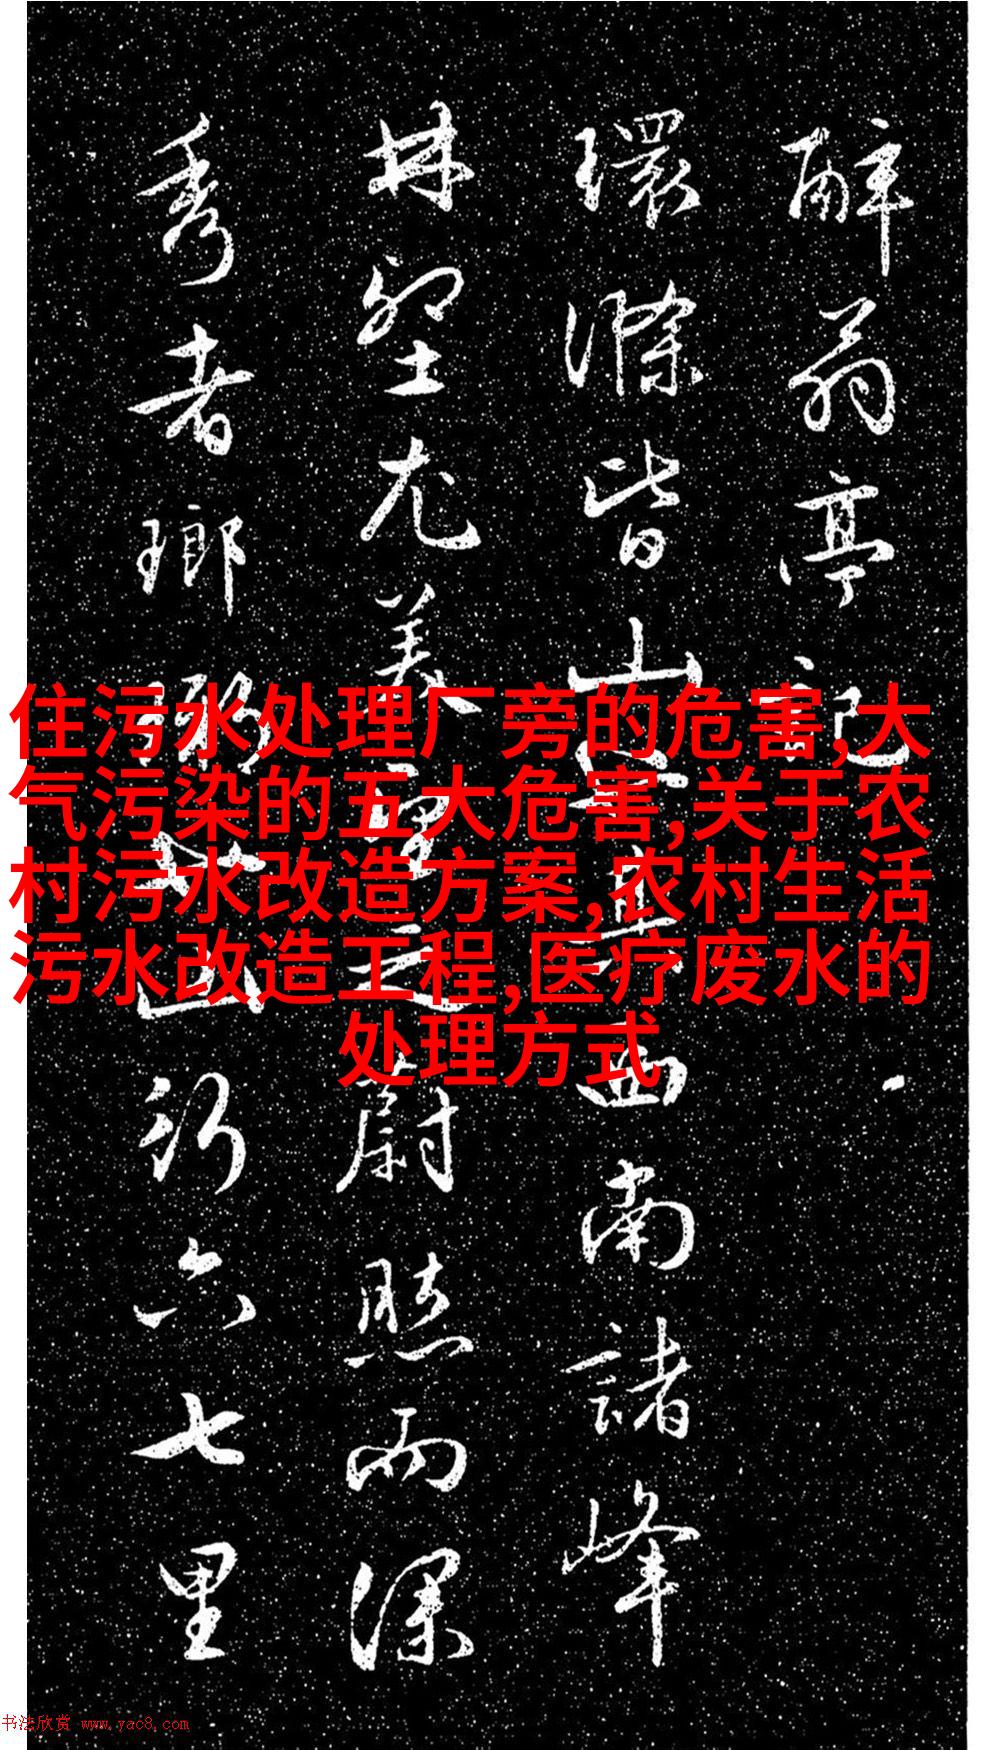 醉翁亭記
環滁皆山其西南諸峰
林壑尤美望之蔚然而深
秀者瑯琊也山行六七里
住污水处理厂旁的危害,大
气污染的五大危害,关于农
村污水改造方案,农村生活
污水改造工程,医疗废水的
处理方式
书法欣赏 www.yac8.com